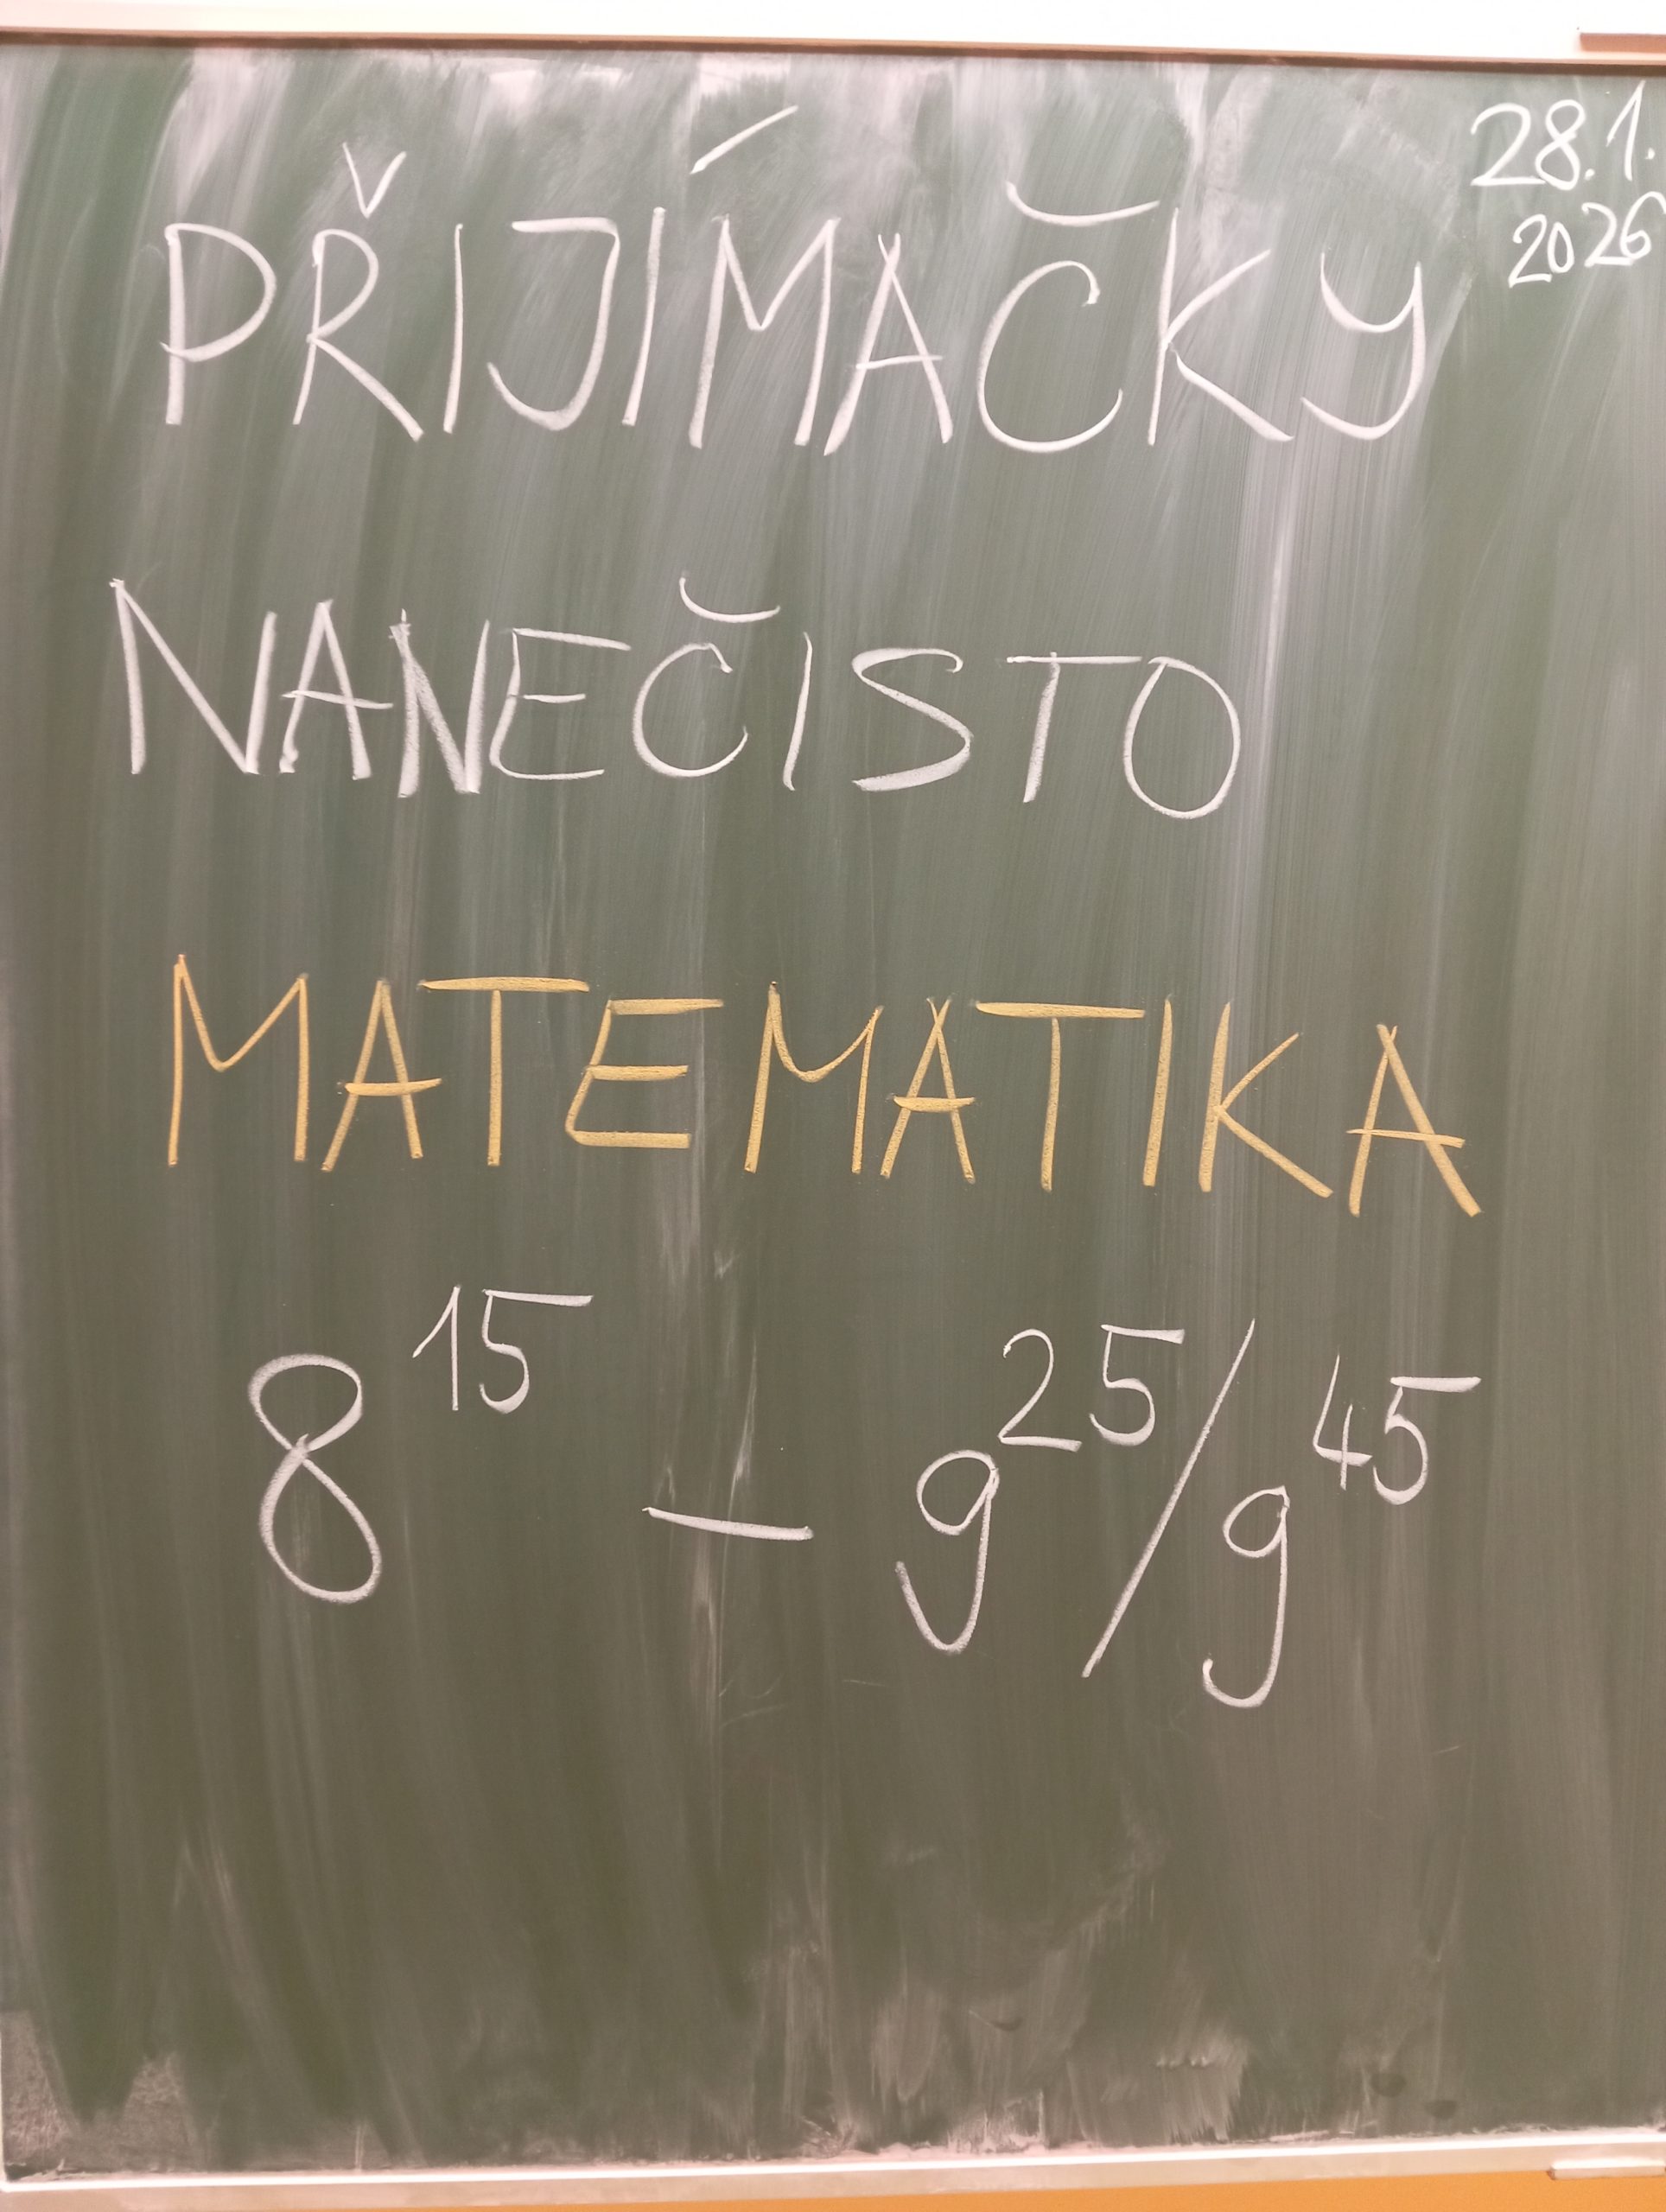 28.1.
2026
PŘIJÍMAČKY
NANEČISTO
MATEMATIKA
8¹⁵ – 9²⁵/9⁴⁵